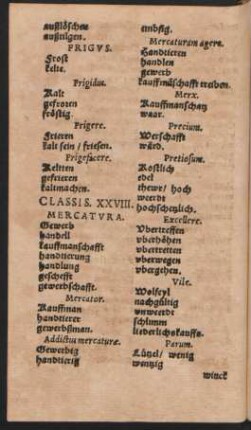 außlöschen
außtilgen.
FRIGVS.
Frost
kelte.
Frigidus.
Kalt
gefroren
fröstig.
Frigere.
Frieren
kalt sein / friesen.
Frigefacere.
Kelten
gefrieren
kaltmachen.
CLASSIS. XXVIII.
MERCATVRA.
Gewerb
handel
kauffmanschafft
handtierung
handlung
gescheft
gewerbschafft.
Mercator.
Kauffman
handtierer
gewerbßman.
Addictus mercaturæ.
Gewerbig
handtierig
embsig.
Mercaturam agere.
Handtieren
handlen
gewerb
kauffmäschafft treiben.
Merx.
Kauffmanschatz
waar.
Precium.
Wetschafft
würd.
Pretiosum.
Kostlich
edel
thewr / hoch
weerdt
hochschetzlich.
Excellere.
Vbertreffen
vberhöhen
vbertretten
vberwegen
vbergehen.
Vile.
Wolfeyl
nachgültig
vnweerdt
schlimm
liederlichskauffs.
Parum.
Lützel / wenig
wenzig
winck